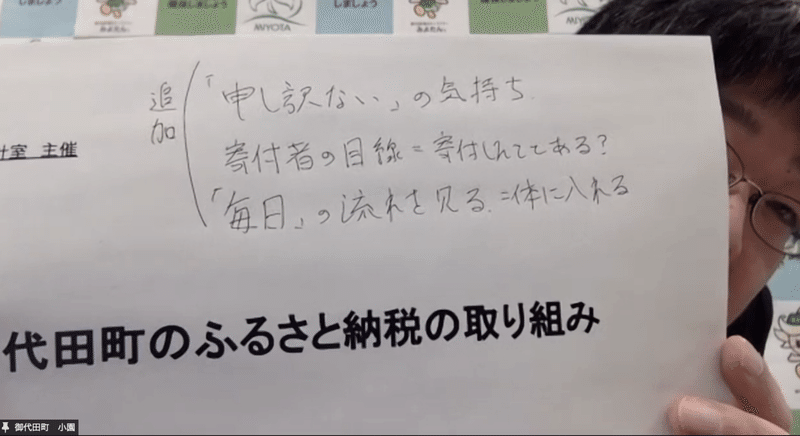 しましょう
みよたん。
MIYOTA
しましょう
みよたん。
MIYOTA
追加
「申し訳ない」の気持ち
寄付者の目線=寄付しててある?
「毎日」の流れを見る。=体に入れる
室 主催
代田町のふるさと納税の取り組み
御代田町 小園